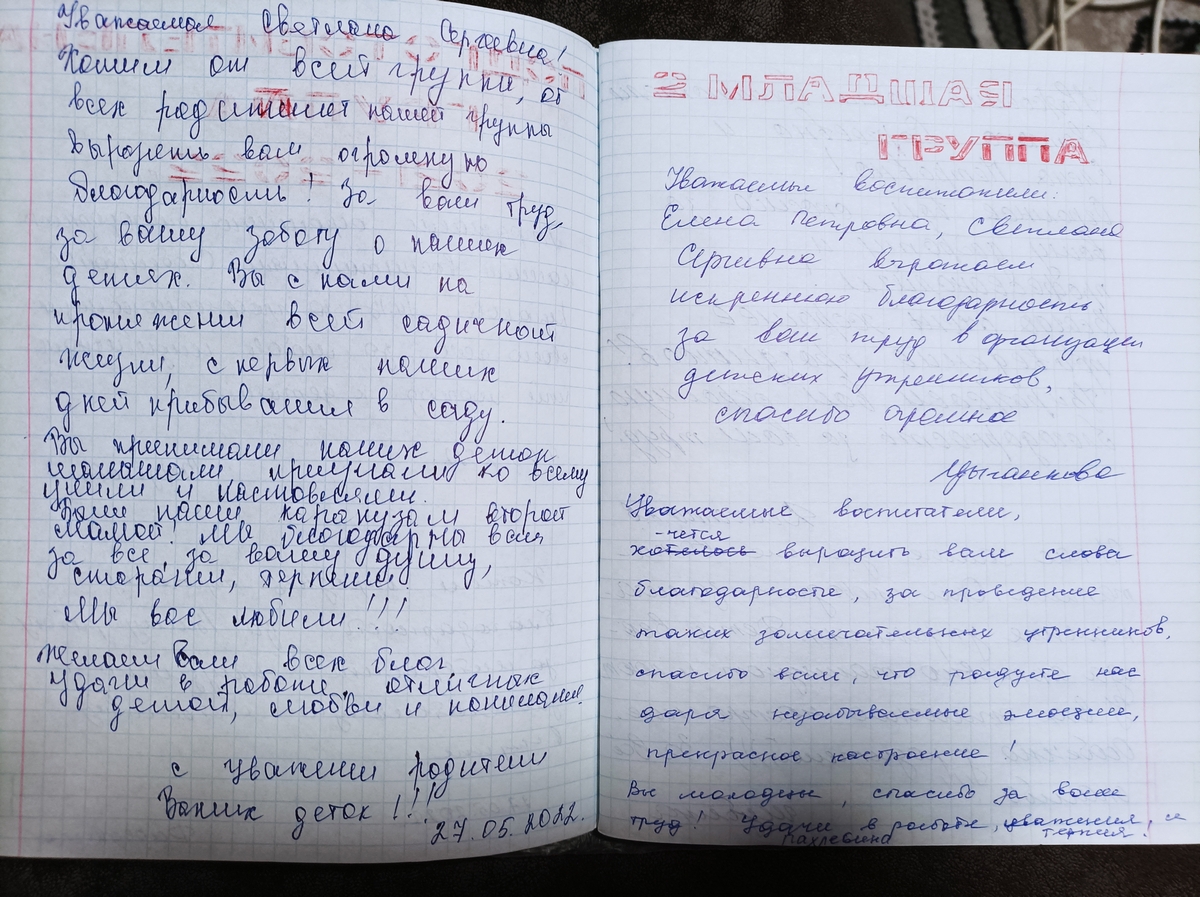 Уважаемая Светлана Сергеевна!
Хотим от всей группы, от
всех родителей нашей группы
выразить вам огромную
благодарность! За ваш труд,
за вашу заботу о наших
детях. Вы с нами на
протяжении всей садичной
жизни, с первых наших
дней прибывания в саду.
Вы принимали наших деток
малышами приучали ко всему
учили и наставляли.
Были наши карапузам второй
мамой. Мы благодарны вам
за все, за вашу душу,
старании, терпение!
Мы вас любим!!!
Желаем Вам всех благ
Удачи в работе, отличных
детей, любви и понимание!
с уважением родители
Ваших деток!!!
27.05.2022.
2 МЛАДШАЯ
ГРУППА
Уважаемые воспитатели:
Елена Петровна, Светлана
Сергивна выражаем
искреннюю благодарность
за ваш труд в организации
детских утренников,
спасибо огромное
Цыганкова
Уважаемые воспитатели,
-чется
хотелось выразить вам слова
благодарности, за проведение
таких замичательных утренников,
спасибо вам, что радуете нас
даря незабываемые эмоции,
прекрасное настроение!
Вы молодцы, спасибо за ваш
труд! Удачи в работе, уважения, и
терпия.
Пахлевина